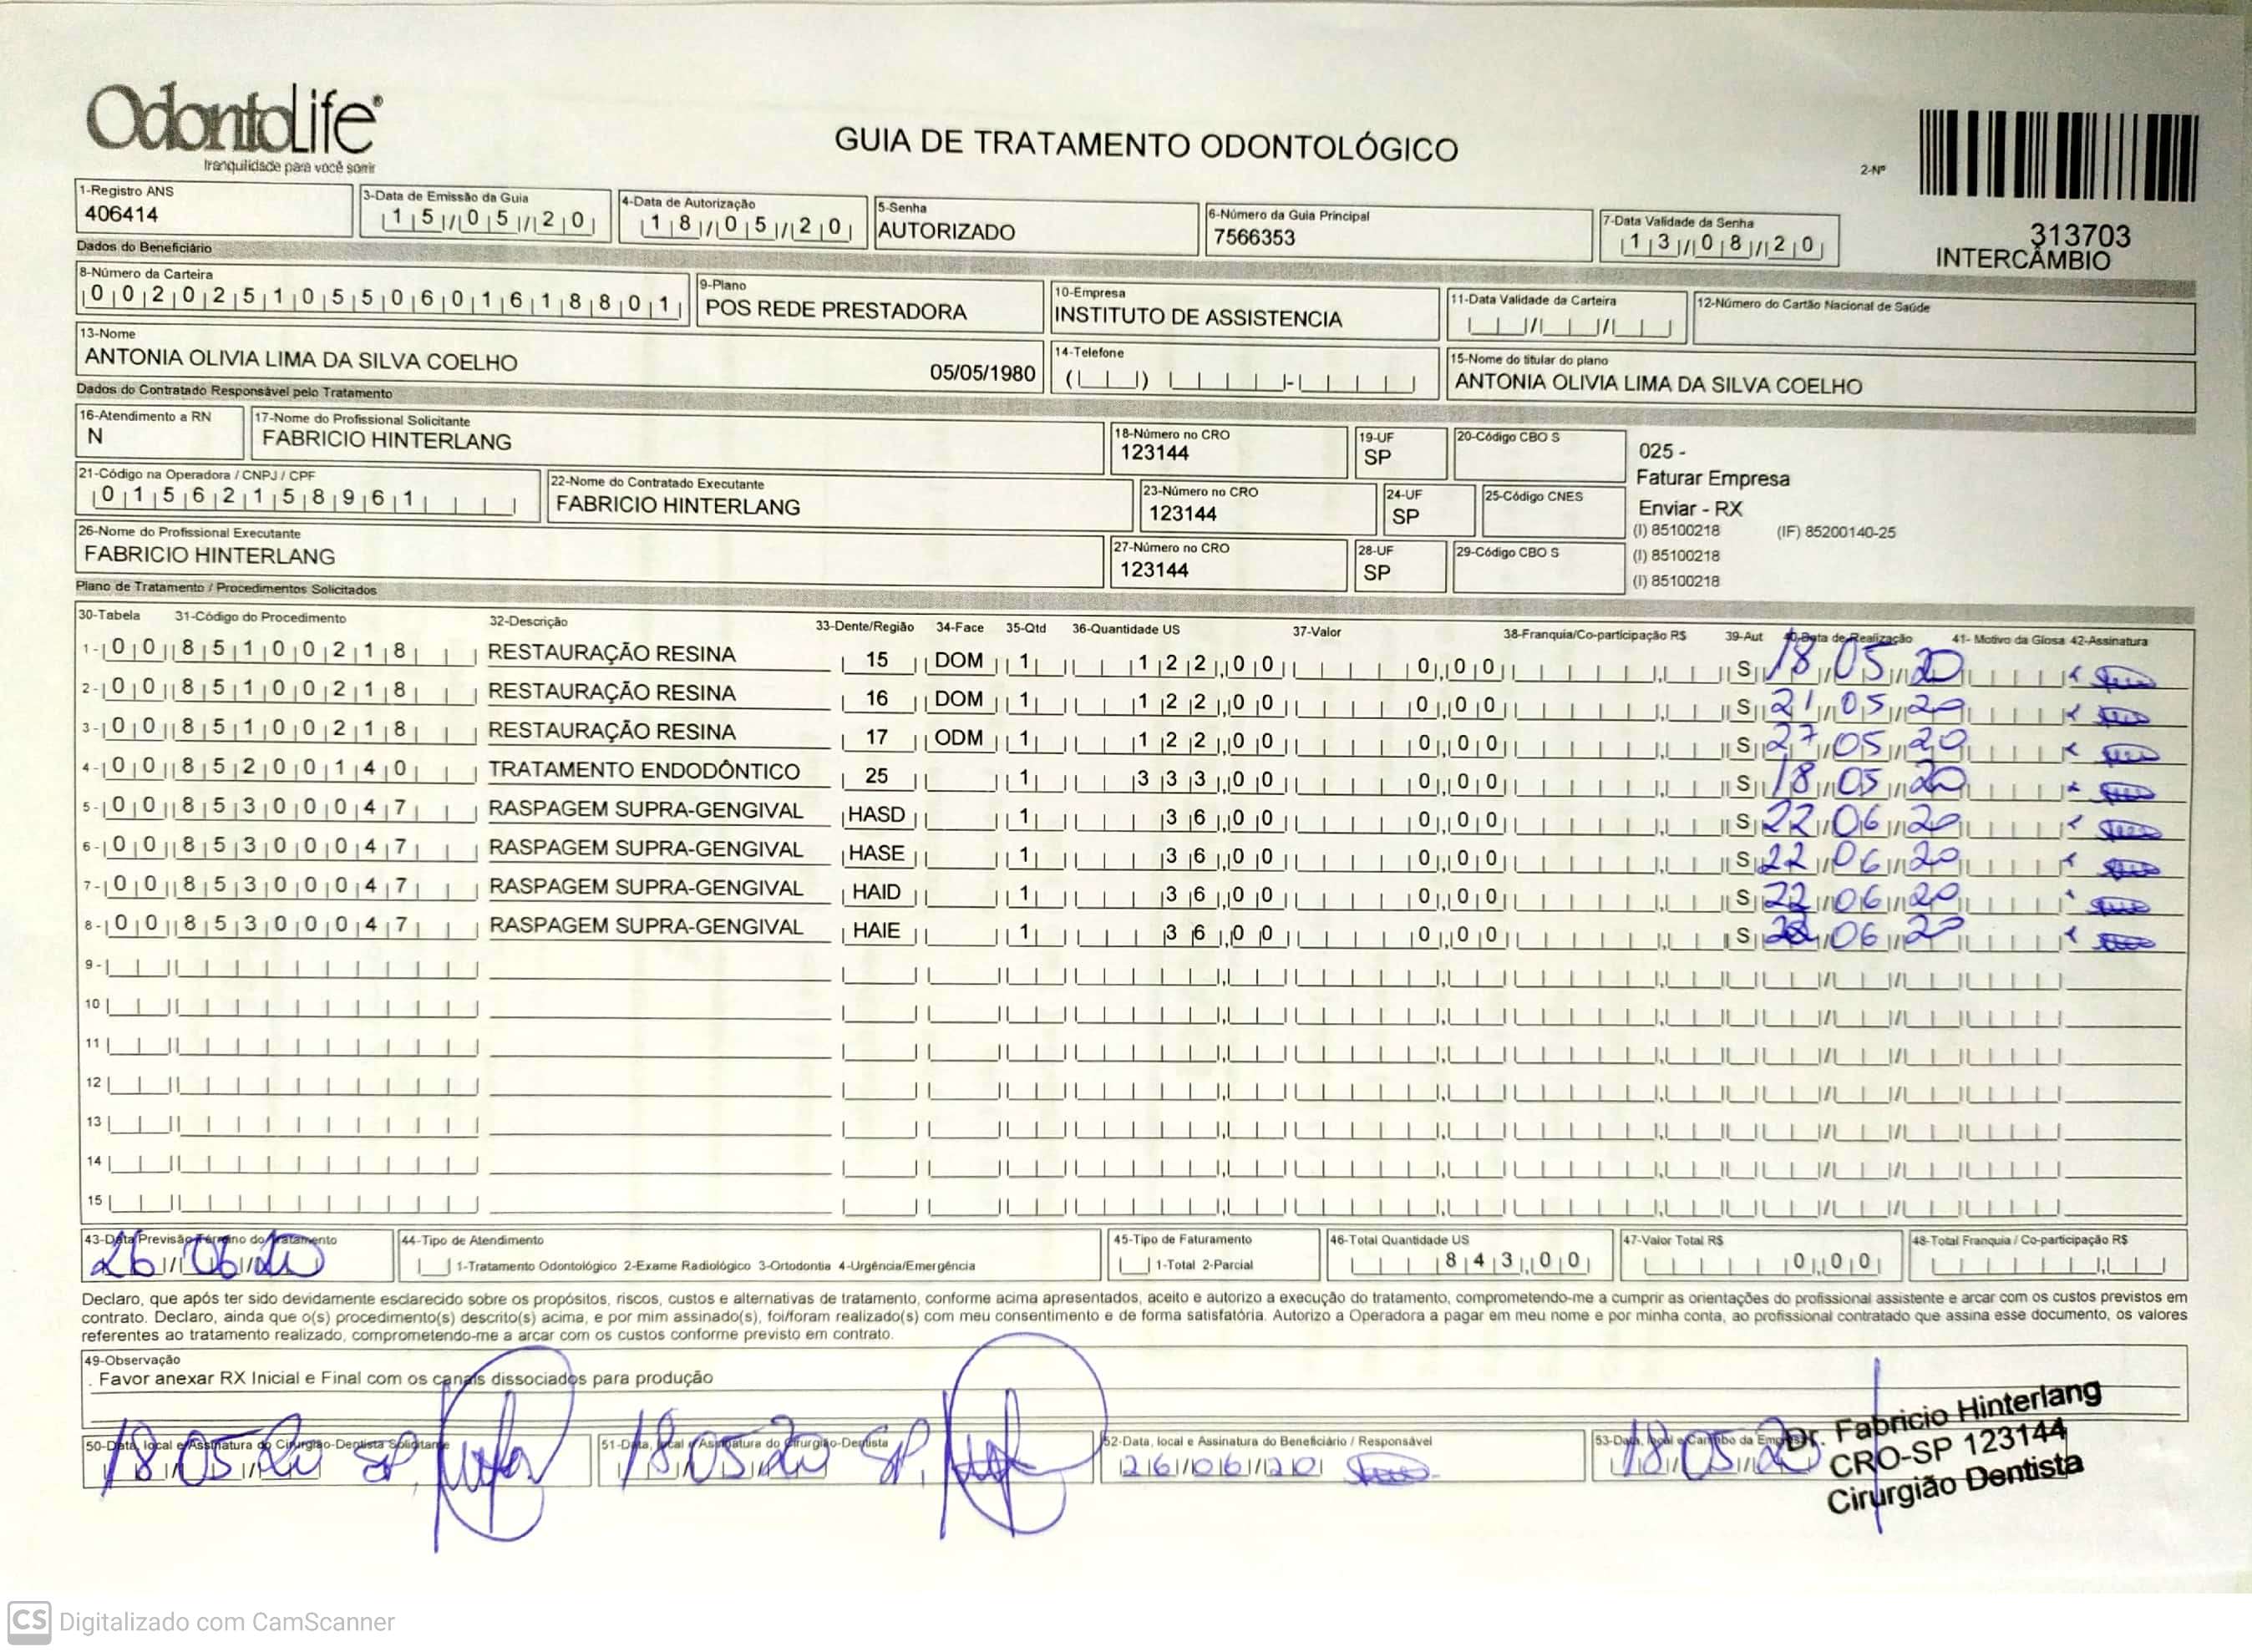 OdontoLife®
tranquilidade para você sorrir
GUIA DE TRATAMENTO ODONTOLÓGICO
2-Nº
313703
INTERCÂMBIO
1-Registro ANS
406414
3-Data de Emissão da Guia
15/05/20
4-Data de Autorização
18/05/20
5-Senha
AUTORIZADO
6-Número da Guia Principal
7566353
7-Data Validade da Senha
13/08/20
Dados do Beneficiário
8-Número da Carteira
00202510550601618801
9-Plano
POS REDE PRESTADORA
10-Empresa
INSTITUTO DE ASSISTENCIA
11-Data Validade da Carteira
12-Número do Cartão Nacional de Saúde
13-Nome
ANTONIA OLIVIA LIMA DA SILVA COELHO 05/05/1980
14-Telefone
15-Nome do titular do plano
ANTONIA OLIVIA LIMA DA SILVA COELHO
Dados do Contratado Responsável pelo Tratamento
16-Atendimento a RN
N
17-Nome do Profissional Solicitante
FABRICIO HINTERLANG
18-Número no CRO
123144
19-UF
SP
20-Código CBO S
025 -
Faturar Empresa
Enviar - RX
(I) 85100218 (IF) 85200140-25
(I) 85100218
(I) 85100218
21-Código na Operadora / CNPJ / CPF
01562158961
22-Nome do Contratado Executante
FABRICIO HINTERLANG
23-Número no CRO
123144
24-UF
SP
25-Código CNES
26-Nome do Profissional Executante
FABRICIO HINTERLANG
27-Número no CRO
123144
28-UF
SP
29-Código CBO S
Plano de Tratamento / Procedimentos Solicitados
30-Tabela 31-Código do Procedimento 32-Descrição 33-Dente/Região 34-Face 35-Qtd 36-Quantidade US 37-Valor 38-Franquia/Co-participação R$ 39-Aut 40-Data de Realização 41- Motivo da Glosa 42-Assinatura
1- 00 85100218 RESTAURAÇÃO RESINA 15 DOM 1 122,00 0,00 S 18/05/20
2- 00 85100218 RESTAURAÇÃO RESINA 16 DOM 1 122,00 0,00 S 21/05/20
3- 00 85100218 RESTAURAÇÃO RESINA 17 ODM 1 122,00 0,00 S 27/05/20
4- 00 85200140 TRATAMENTO ENDODÔNTICO 25 1 333,00 0,00 S 18/05/20
5- 00 85300047 RASPAGEM SUPRA-GENGIVAL HASD 1 36,00 0,00 S 22/06/20
6- 00 85300047 RASPAGEM SUPRA-GENGIVAL HASE 1 36,00 0,00 S 22/06/20
7- 00 85300047 RASPAGEM SUPRA-GENGIVAL HAID 1 36,00 0,00 S 22/06/20
8- 00 85300047 RASPAGEM SUPRA-GENGIVAL HAIE 1 36,00 0,00 S /06/20
9-
10
11
12
13
14
15
43-Data Previsão Término do Tratamento
26/06/20
44-Tipo de Atendimento
1-Tratamento Odontológico 2-Exame Radiológico 3-Ortodontia 4-Urgência/Emergência
45-Tipo de Faturamento
1-Total 2-Parcial
46-Total Quantidade US
843,00
47-Valor Total R$
0,00
48-Total Franquia / Co-participação R$
Declaro, que após ter sido devidamente esclarecido sobre os propósitos, riscos, custos e alternativas de tratamento, conforme acima apresentados, aceito e autorizo a execução do tratamento, comprometendo-me a cumprir as orientações do profissional assistente e arcar com os custos previstos em
contrato. Declaro, ainda que o(s) procedimento(s) descrito(s) acima, e por mim assinado(s), foi/foram realizado(s) com meu consentimento e de forma satisfatória. Autorizo a Operadora a pagar em meu nome e por minha conta, ao profissional contratado que assina esse documento, os valores
referentes ao tratamento realizado, comprometendo-me a arcar com os custos conforme previsto em contrato.
49-Observação
. Favor anexar RX Inicial e Final com os canais dissociados para produção
50-Data, local e Assinatura do Cirurgião-Dentista Solicitante
18/05/20 SP,
51-Data, local e Assinatura do Cirurgião-Dentista
18/05/20 SP,
52-Data, local e Assinatura do Beneficiário / Responsável
26/06/20
53-Data, local e Carimbo da Empresa
18/05/20
Dr. Fabricio Hinterlang
CRO-SP 123144
Cirurgião Dentista
CS Digitalizado com CamScanner